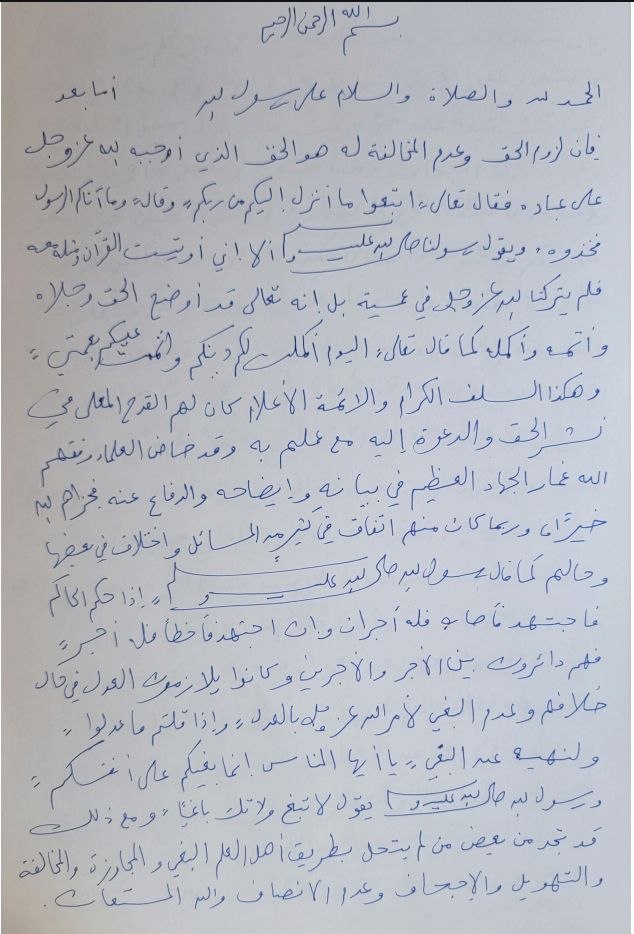 بسم الله الرحمن الرحيم
الحمد لله والصلاة والسلام على رسول الله أما بعد
فإن لزوم الحق وعدم المخالفة له هو الحق الذي أوجبه الله عز وجل
على عباده فقال تعالى "اتبعوا ما أنزل إليكم من ربكم" وقال "وما آتاكم الرسول
فخذوه" ويقول رسولنا صلى الله عليه وسلم "ألا إني أوتيت القرآن ومثله معه
فلم يتركنا الله عز وجل في عمية بل إنه تعالى قد أوضح الحق وجلاه
وأتمه وأكمله كما قال تعالى "اليوم أكملت لكم دينكم وأتممت عليكم نعمتي"
وهكذا السلف الكرام والأئمة الأعلام كان لهم القدح المعلى في
نشر الحق والدعوة إليه مع عملهم به وقد خاض العلماء وفقهم
الله غمار الجهاد العظيم في بيانه وإيضاحه والدفاع عنه فجزاهم الله
خيرًا، وربما كان منهم اتفاق في كثير من المسائل واختلاف في بعضها
وحالهم كما قال رسول الله صلى الله عليه وسلم "إذا حكم الحاكم
فاجتهد فأصاب فله أجران وإن اجتهد فأخطأ فله أجر"
فهم دائرون بين الأجر والأجرين وكانوا يلازمون العدل في حال
خلافهم وعدم البغي لأمر الله عز وجل بالعدل "وإذا قلتم فاعدلوا"
ولنهيه عن البغي "يا أيها الناس إنما بغيكم على أنفسكم"
ورسول الله صلى الله عليه وسلم يقول لا تبغ ولا تك باغيًا" ومع ذلك
قد تجد من بعض من لم يتحل بطريق أهل العلم البغي والمجاوزة والمخالفة
والتهويل والإجحاف وعدم الانصاف والله المستعان.